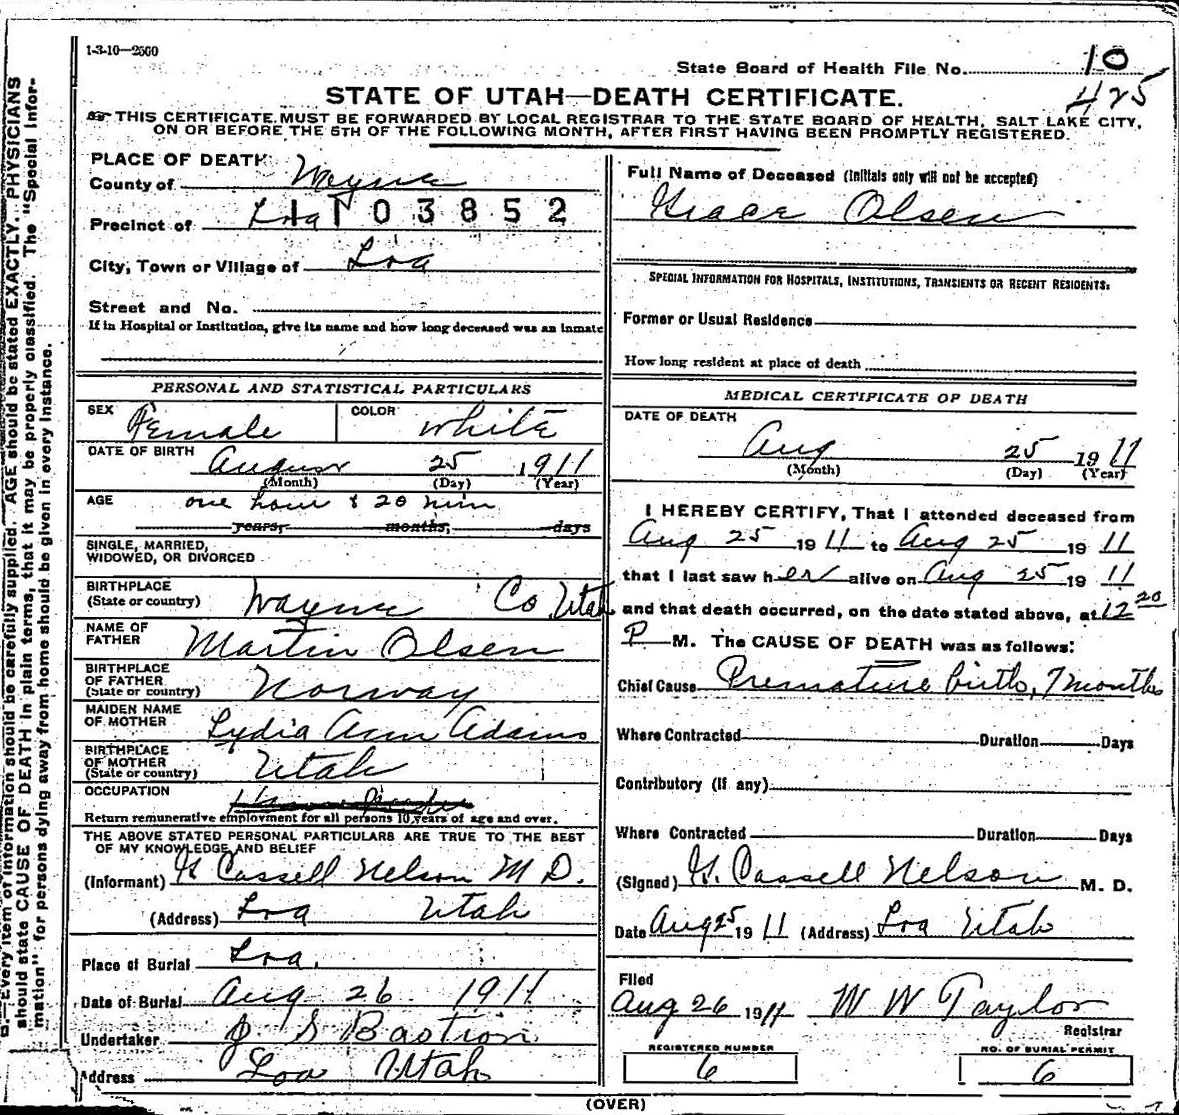 1-3-10—2560
State Board of Health File No. 10
425
STATE OF UTAH—DEATH CERTIFICATE.
THIS CERTIFICATE MUST BE FORWARDED BY LOCAL REGISTRAR TO THE STATE BOARD OF HEALTH, SALT LAKE CITY,
ON OR BEFORE THE 5TH OF THE FOLLOWING MONTH, AFTER FIRST HAVING BEEN PROMPTLY REGISTERED.
PLACE OF DEATH
County of Wayne
1103852
Precinct of Loa
City, Town or Village of Loa
Street and No.
If in Hospital or Institution, give its name and how long deceased was an inmate
PERSONAL AND STATISTICAL PARTICULARS
SEX Female COLOR White
DATE OF BIRTH August 25, 1911
(Month) (Day) (Year)
AGE one hour & 20 min
years, months, days
SINGLE, MARRIED,
WIDOWED, OR DIVORCED
BIRTHPLACE
(State or country) Wayne Co Utah
NAME OF
FATHER Martin Olsen
BIRTHPLACE
OF FATHER
(State or country) Norway
MAIDEN NAME
OF MOTHER Lydia Ann Adams
BIRTHPLACE
OF MOTHER
(State or country) Utah
OCCUPATION
Return remunerative employment for all persons 10 years of age and over.
THE ABOVE STATED PERSONAL PARTICULARS ARE TRUE TO THE BEST
OF MY KNOWLEDGE AND BELIEF
(Informant) G Cassell Nelson M D.
(Address) Loa Utah
Place of Burial Loa.
Date of Burial Aug 26 1911
Undertaker J S Bastion
Address Loa Utah
Full Name of Deceased (Initials only will not be accepted)
Grace Olsen
SPECIAL INFORMATION FOR HOSPITALS, INSTITUTIONS, TRANSIENTS OR RECENT RESIDENTS:
Former or Usual Residence
How long resident at place of death
MEDICAL CERTIFICATE OF DEATH
DATE OF DEATH
Aug 25 1911
(Month) (Day) (Year)
I HEREBY CERTIFY, That I attended deceased from
Aug 25 1911 to Aug 25 1911
that I last saw her alive on Aug 25 1911
and that death occurred, on the date stated above, at 12 20
P M. The CAUSE OF DEATH was as follows:
Chief Cause Premature birth, 7 months
Where Contracted Duration Days
Contributory (if any)
Where Contracted Duration Days
(Signed) G. Cassell Nelson M. D.
Date Aug 25 1911 (Address) Loa Utah
Filed
Aug 26 1911 W W Taylor
Registrar
REGISTERED NUMBER
6
NO. OF BURIAL PERMIT
6
(OVER)
B.—Every item of information should be carefully supplied. AGE should be stated EXACTLY. PHYSICIANS
should state CAUSE OF DEATH in plain terms, that it may be properly classified. The "Special Infor-
mation" for persons dying away from home should be given in every instance.